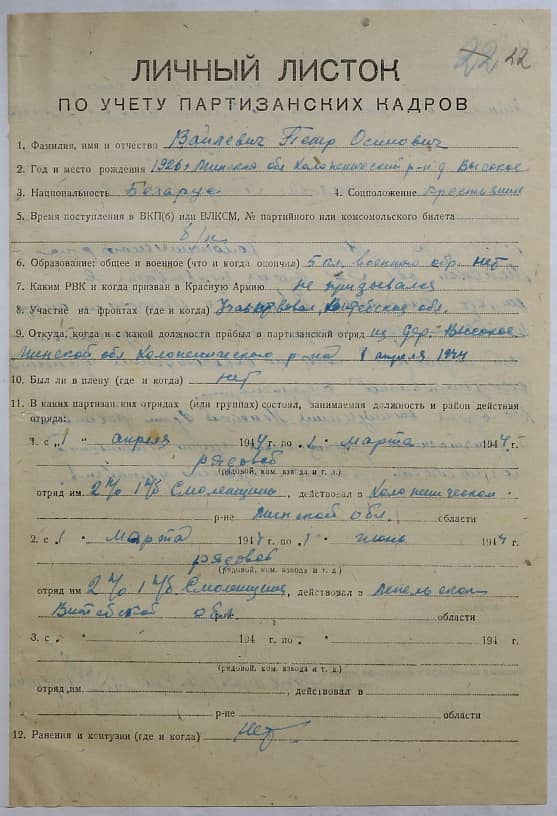 22 22
ЛИЧНЫЙ ЛИСТОК
ПО УЧЕТУ ПАРТИЗАНСКИХ КАДРОВ
1. Фамилия, имя и отчество Вайлевич Петр Осипович
2. Год и место рождения 1926 г Минская обл Холопеничский р-н д. Высокое
3. Национальность Беларус 4. Соцположение крестьянин
5. Время поступления в ВКП(б) или ВЛКСМ, № партийного или комсомольского билета
б/п
6. Образование: общее и военное (что и когда окончил) 5 кл, военного обр. нет
7. Каким РВК и когда призван в Красную Армию не призывался
8. Участие на фронтах (где и когда) Участвовал, Витебская обл.
9. Откуда, когда и с какой должности прибыл в партизанский отряд из дер. Высокое
Минской обл Холопеничского р-на 1 апреля 1944
10. Был ли в плену (где и когда) нет
11. В каких партизанских отрядах (или группах) состоял, занимаемая должность и район действия
отряда:
1. с „1 “ апреля 1944 г. по „1 “ марта 1944 г.
рядовой
(рядовой, ком. взвода и т. д.)
отряд им. 2 ч/о 1 ч/б Смоленщина, действовал в Холопеническом
р-не Минской обл. области
2. с „1 “ марта 1944 г. по „1 “ июнь 1944 г.
рядовой
(рядовой, ком. взвода и т. д.)
отряд им 2 ч/о 1 ч/б Смоленщина, действовал в Лепельском
Витебской обл. области
3. с „ “ 194 г. по „ “ 194 г.
(рядовой, ком. взвода и т. д.)
отряд им. , действовал в
р-не области
12. Ранения и контузии (где и когда) нет